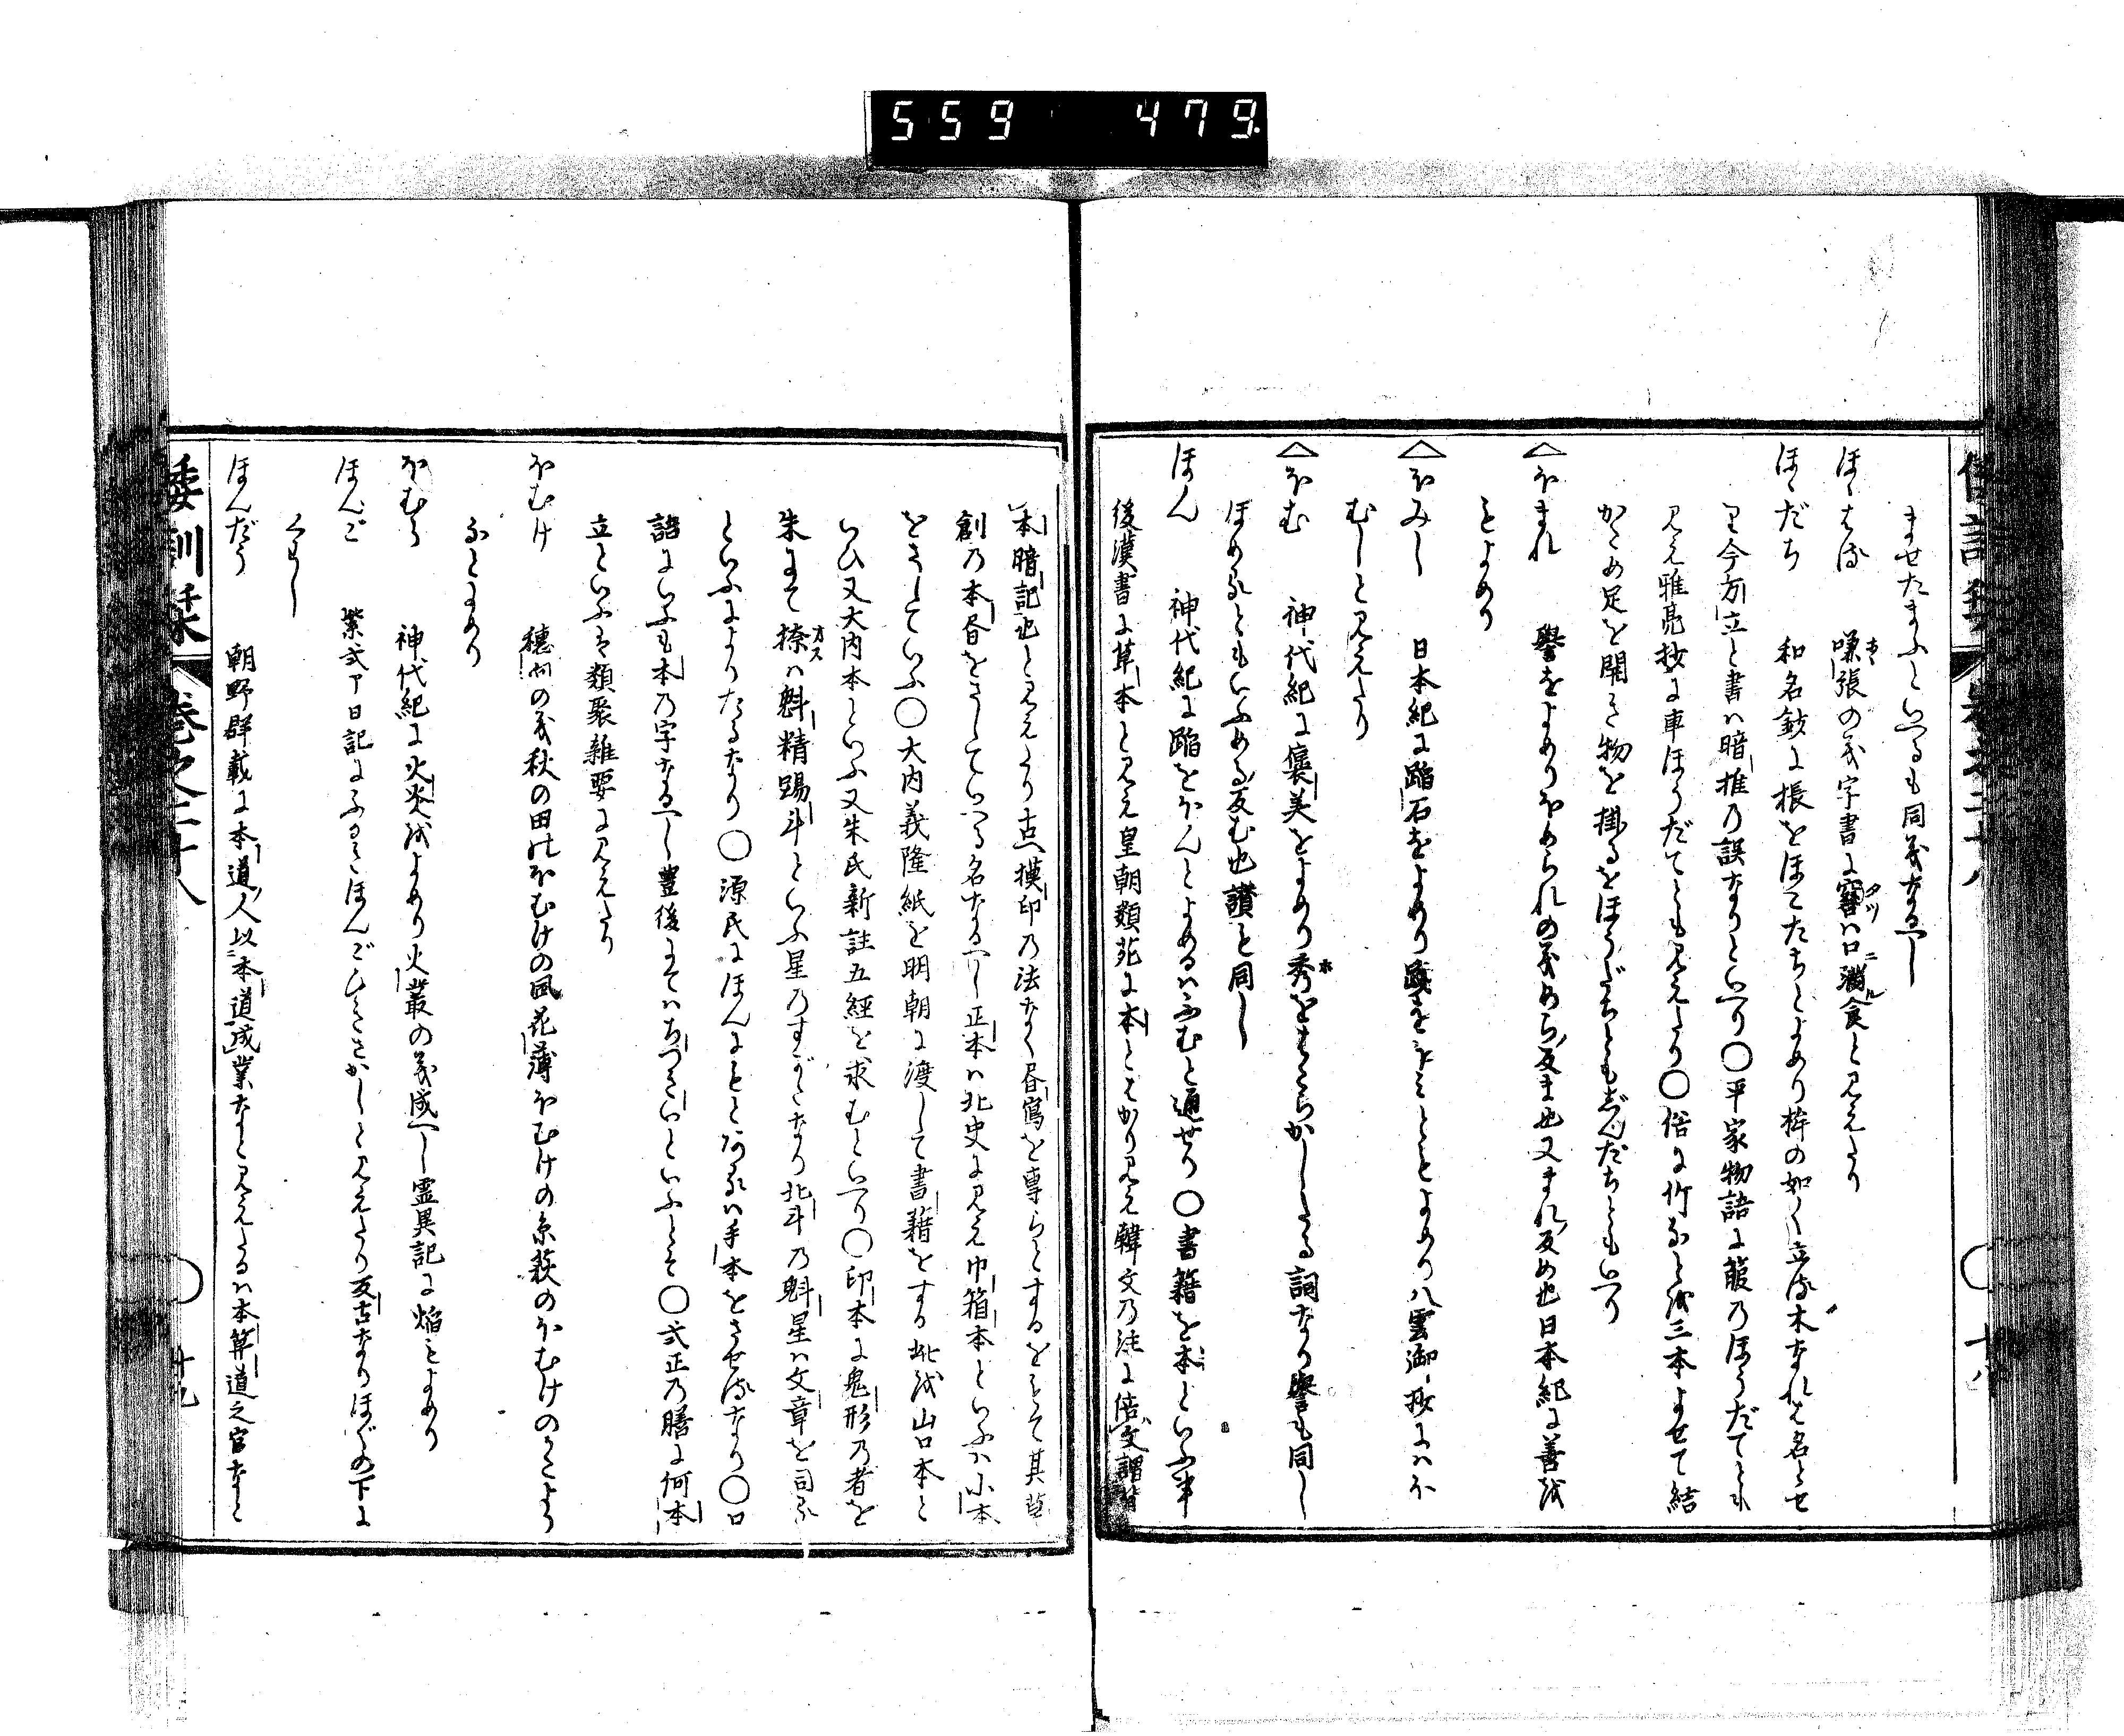 559 479
ませたまふといへるも同義なるへし
ほゝはる 嗛張の義字書に窶ハ口満食と見えたり
ほゝだち 和名鈔に棖をほこたちとよめり桙の如く立る木なれは名とせ
り今方立と書ハ暗推の誤なりといへり○平家物語に箙のほうだてとも
見え雅亮抄に車ほうだてとも見えたり○俗に竹なとを三本よせて結
かため足を開き物を掛るをほうだちともぢんだちともいへり
ほまれ 譽をよめりほめられの義めら反ま也又まれ反め也日本紀に善を
もよめり
ほみし 日本紀に蹈石をよめり踐をほみとともよめり八雲御抄にハほ
むしと見えたり
ほむ 神代紀に褒美をよめり秀をはたらかしたる詞なり譽も同し
ほめるともいふめる反む也讃も同し
ほん 神代紀に蹈をほんとよめるハふむと通せり○書籍を本といふ事
後漢書に草本と見え皇朝類苑に本とはかり見え韓文の注に倍文謂背
本暗記也と見えたり古へ摸印の法なく昼寫を専らとするをもて其草
創の本昼をさしていへる名なるへし正本ハ北史に見え巾箱本といふハ小本
をさしていふ○大内義隆紙を明朝に渡して書籍をする此を山口本と
いひ又大内本といふ又朱氏新註五經を求むといへり○印本に鬼形の者を
朱にて捺ハ魁精踢斗といふ星のすがたなり北斗の魁星ハ文章を司る
といふによりたるなり○源氏にほんにもとあるハ手本をさせるなり○口
語にいふも本の字なるへし豊後にてハちつくいといふとそ○式正の膳に何本
立といふは類聚雜要に見えたり
ほむけ 穂向の義秋の田のほむけの風花薄ほむけの糸萩のほむけのかたより
なとよめり
ほむら 神代紀に火炎をよめり火叢の義成へし靈異記に焔をよめり
ほんご 紫式ア日記にふるきほんごひきさかしと見えたり反古なりほぐの下に
くはし
ほんだう 朝野群載に本道人以本道成業なと見えたるハ本算道之官なと
倭訓栞 巻之二十八 十九